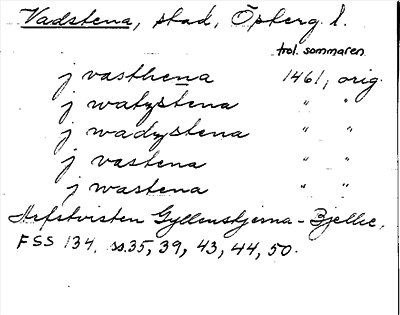 Vadstena, stad, Öpberg l.
trol. sommaren
j vasthena 1461, orig.
j watzstena " "
j wadzstena " "
j vastena " "
j wastena " "
Arfstvisten Gyllenstjerna - Bjelke,
FSS 134. ss. 35, 39, 43, 44, 50.